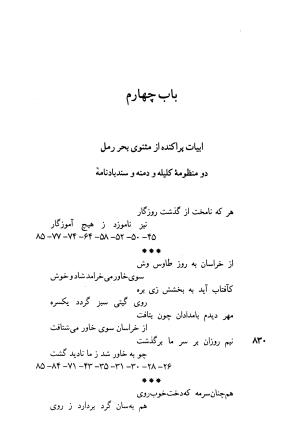 باب چهارم
ابیات پراکنده از مثنوی بحر رمل
دو منظومهٔ کلیله و دمنه و سندبادنامهٔ
هر که نامخت از گذشت روزگار
نیز ناموزد ز هیچ آموزگار
۴۵- ۵۰- ۵۲- ۵۸- ۶۴- ۷۴- ۷۷- ۸۵
***
از خراسان به روز طاوس وش
سوی خاور می‌خرامد شاد و خوش
کآفتاب آید به بخشش زی بره
روی گیتی سبز گردد یکسره
مهر دیدم بامدادان چون بتافت
از خراسان سوی خاور می‌شتافت
۸۳۰ نیم روزان بر سر ما برگذشت
چو به خاور شد ز ما نادید گشت
۲۶- ۲۸- ۳۰- ۳۱- ۳۵- ۴۳- ۷۱- ۸۴- ۸۵
***
هم‌چنان سرمه که دخت خوب‌روی
هم به‌سان گرد بردارد ز روی